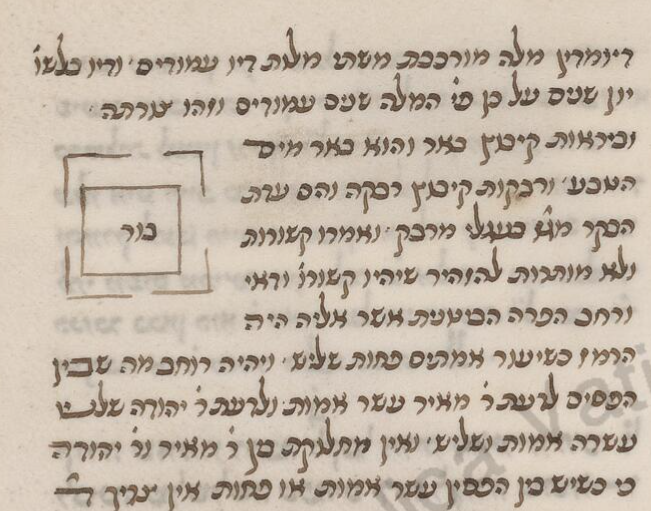 דיומדין מלה מורכבת משתי מלות דיו עמודים׳ ודיו בלשו׳
יון שנים על כן פי׳ המלה שנים עמודים וזהו צורתה׳
וביראות קיבוץ באר והוא באר מים
הטבע׳ ורבקות קיבוץ רבקה והם עדת
הבקר כעגלי מרבק׳ ואמרו קשורות
ולא מותרות להזהיר שיהיו קשורו׳ ודאי
בור
ורחב הפרה הבינונית אשר אליה היה
הרמז כשיעור אמתים פחות שליש׳ ויהיה רוחב מה שבין
הפסים לדעת ר׳ מאיר עשר אמות׳ ולדעת ר׳ יהודה שלש
עשרה אמות ושליש׳ ואין מחלוקת בין ר׳ מאיר ור׳ יהודה
כי כשיש בין הפסין עשר אמות או פחות אין צריך
lica Vati